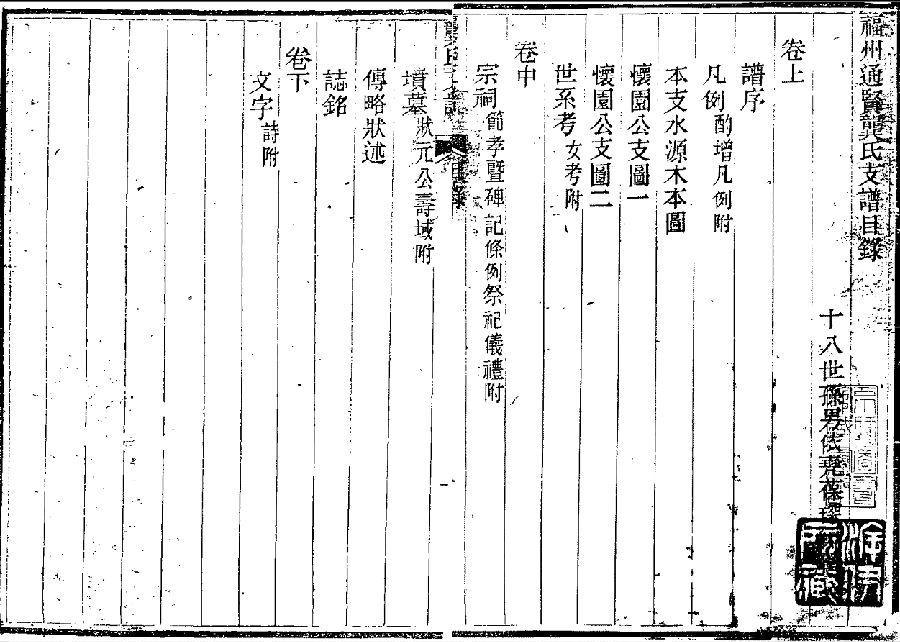 福州通賢龔氏支譜目錄
十八世孫男依堯葆
卷上
譜序
凡例酌增凡例附
本支水源木本圖
懷園公支圖一
懷園公支圖二
世系考女考附
卷中
宗祠節孝暨碑記條例祭祀儀禮附
墳墓狀元公壽域附
傳略狀述
誌銘
卷下
文字詩附